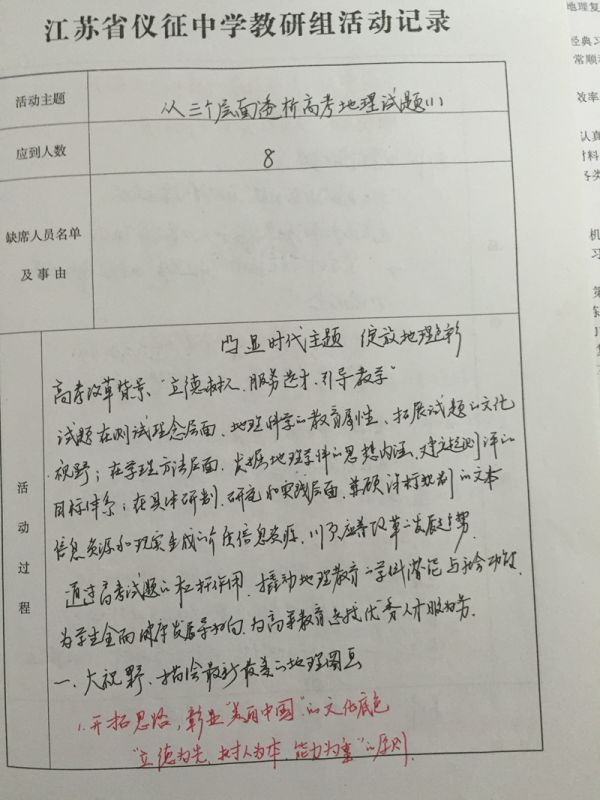 江苏省仪征中学教研组活动记录
活动主题
从三个层面透析高考地理试题(1)
应到人数
8
缺席人员名单
及事由
活动过程
凸显时代主题 绽放地理色彩
高考改革背景、"立德树人、服务选才、引导教学"
试题在测试理念层面、地理科学的教育属性、拓展试题的文化
视野;在学理方法层面,发掘地理学科的思想内涵、建立起测评的
目标体系;在具体研制、研究和实践层面,兼顾课标规划的文本
信息资源和现实生成的信息资源,以顺应改革之发展趋势.
通过高考试题的杠杆作用,撬动地理教育之学科潜能与社会功能,
为学生全面健康发展导向,为高等教育选拔优秀人才服务.
一、大视野、描绘最新最美的地理图画
1.开拓思路,彰显"美丽中国"的文化底色
"立德为先、树人为本、能力为重"的原则.
地理复
经典习
常顺
效率
认真
材料
各类
机
习
第